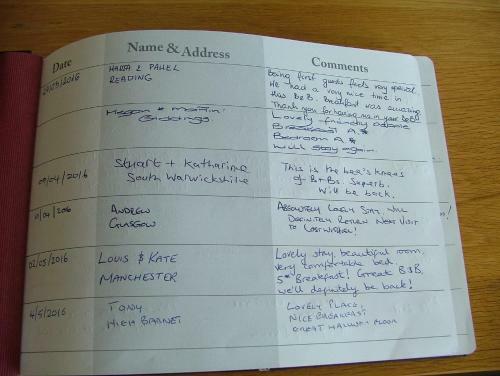 Date Name & Address Comments
HARTA & PAWEL
READING
Being first guests feels very special
We had a very nice time in
this B&B. Breakfast was amazing
Thank you for having us in your B&B
Megan & Martin
Giddings
Lovely friendly
Breakfast A*
Bedroom A*
Will stay again.
09/04/2016
Stuart + Katharine
South Warwickshire
This is the bee's knees
of B+Bs. Superb.
Will be back.
ANDREW
GLASGOW
ABSOLUTELY LOVELY STAY WILL
DEFINITELY RETURN NEXT VISIT
TO
02/05/2016
LOUIS & KATE
MANCHESTER
Lovely stay, beautiful room,
very comfortable bed,
5* Breakfast! Great B&B,
we'll definitely be back!
4/5/2016
TONY
HIGH BARNET
LOVELY PLACE,
NICE BREAKFAST
GREAT FLOOR